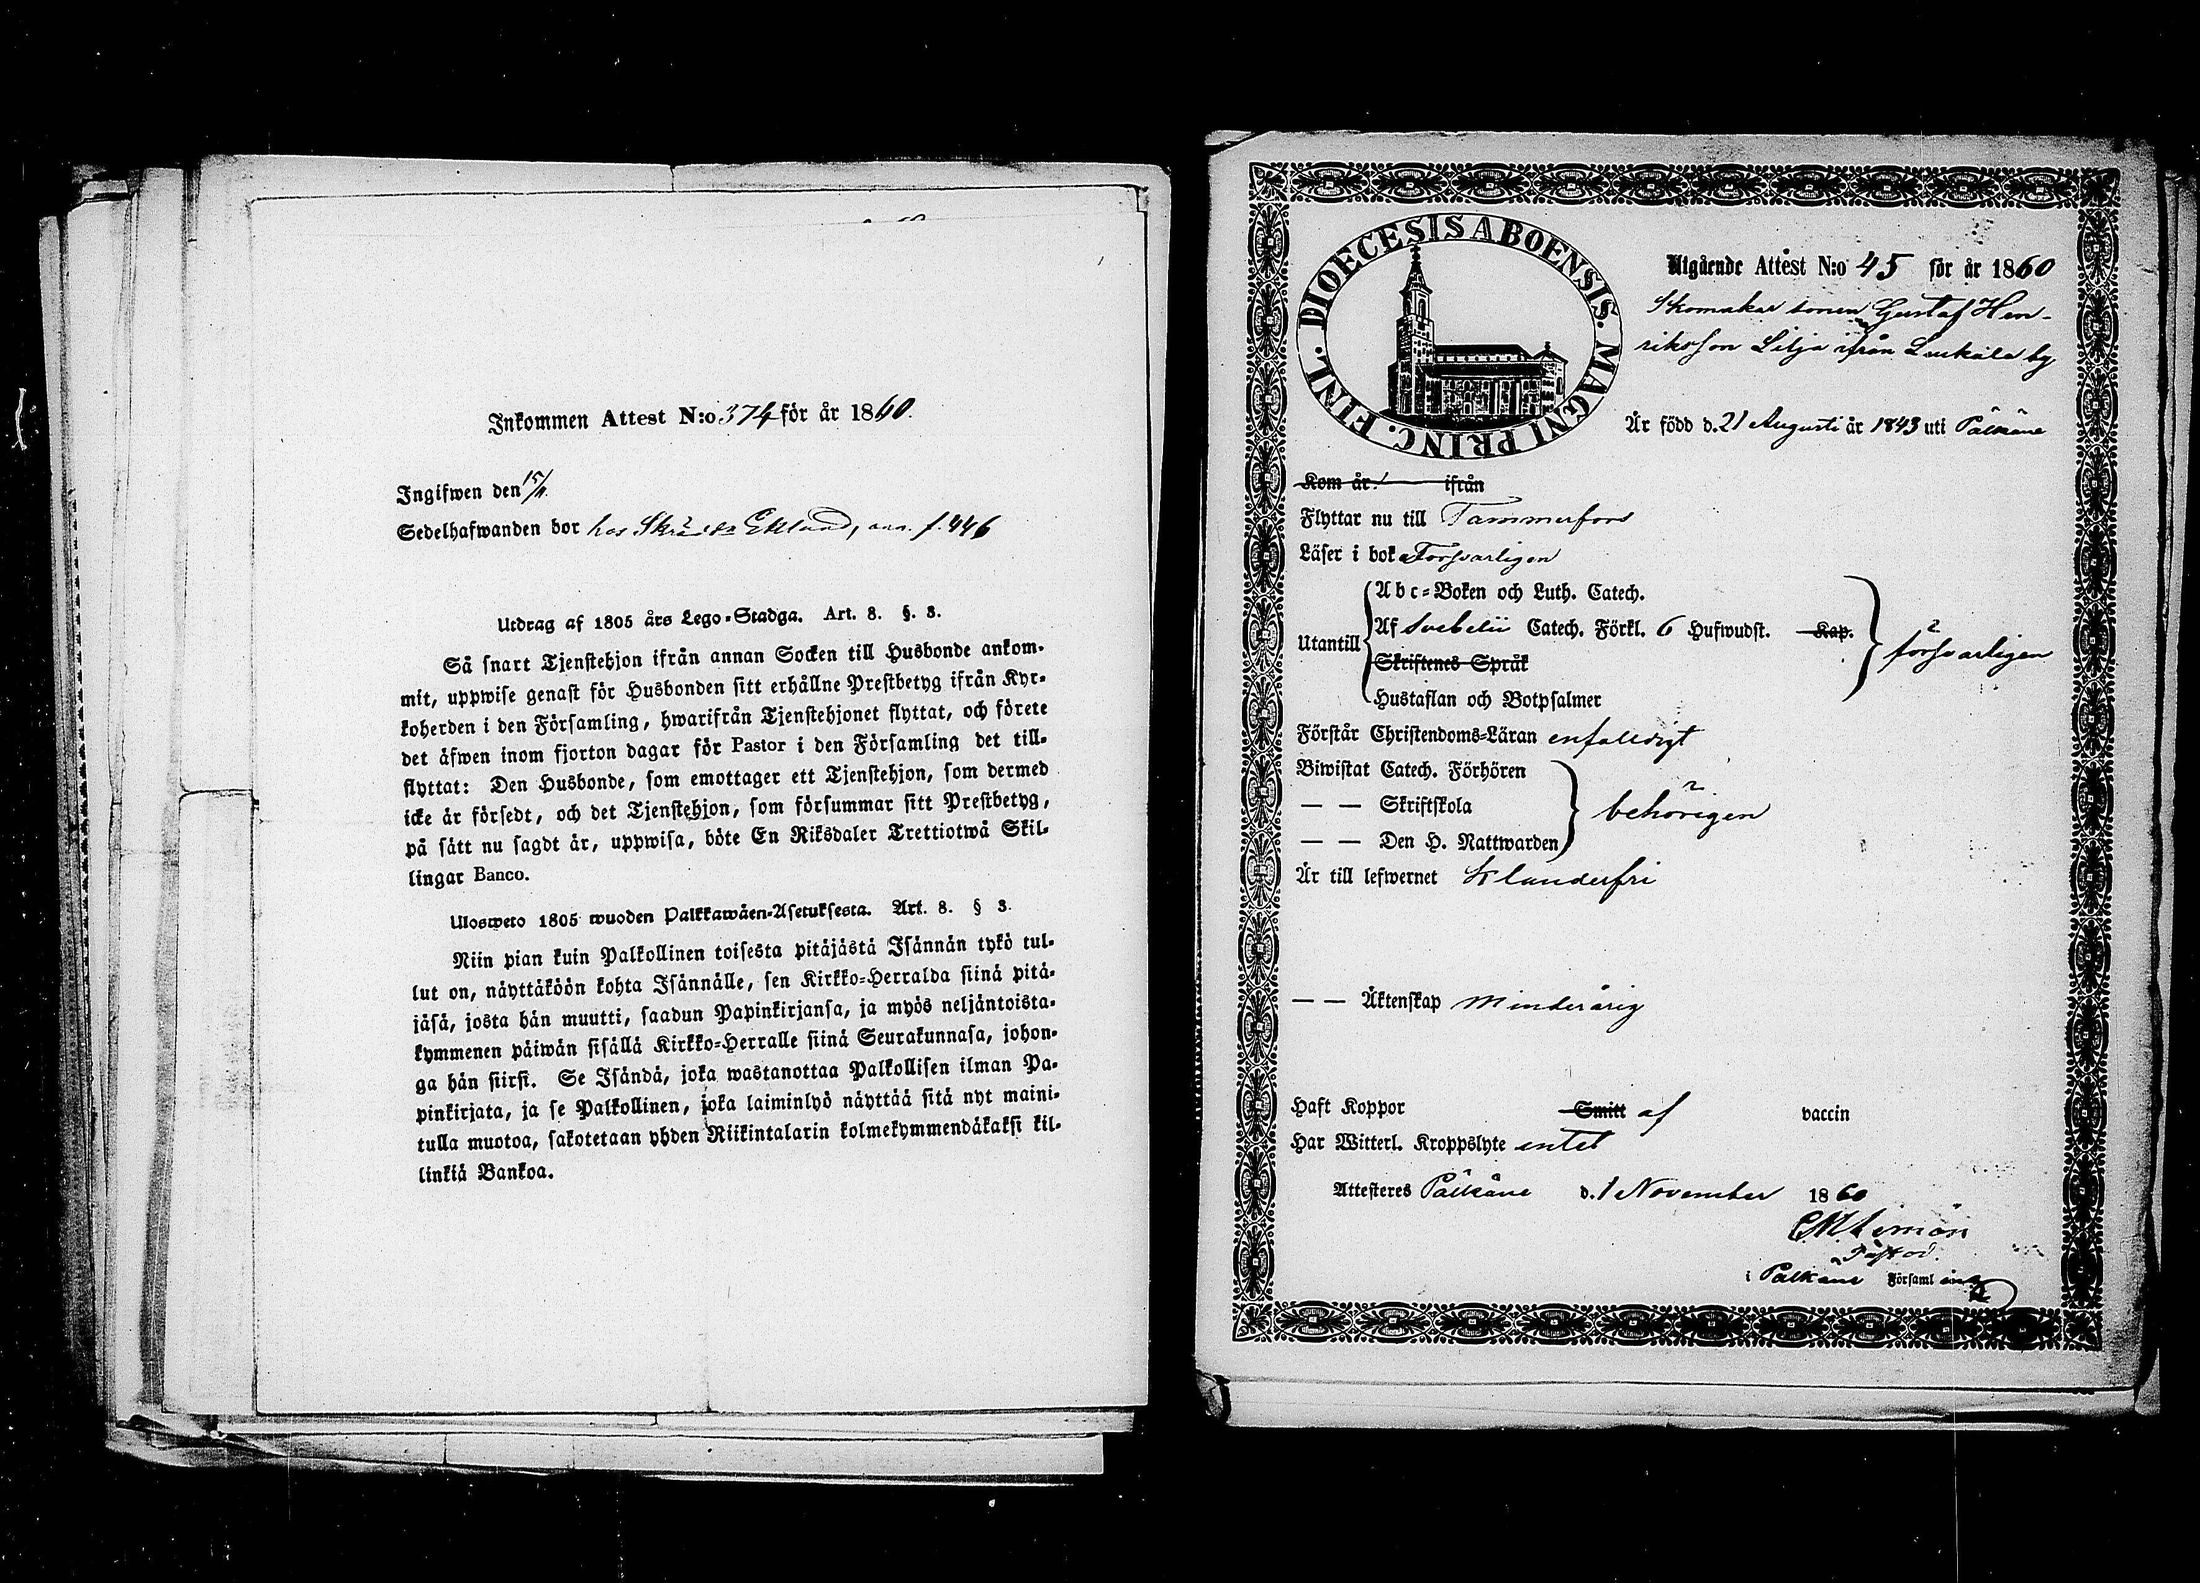 Inkommen Attest N:o 374 för år 1860.
Ingifwen den 15/11.
Sedelhafwanden bor hos Skräd. Eklund, f. 446
Utdrag af 1805 års Lego-Stadga. Art. 8. §. 3.
Så snart Tjenstehjon ifrån annan Socken till Husbonde ankom-
mit, uppwise genast för Husbonden sitt erhållne Prestbetyg ifrån Kyr-
koherden i den Församling, hwarifrån Tjenstehjonet flyttat, och förete
det äfwen inom fjorton dagar för Pastor i den Församling det till-
flyttat: Den Husbonde, som emottager ett Tjenstehjon, som dermed
icke är försedt, och det Tjenstehjon, som försummar sitt Prestbetyg,
på sätt nu sagdt är, uppwisa, böte En Riksdaler Trettiotwå Skil-
lingar Banco.
Ulosweto 1805 wuoden Palkkawäen-Asetuksesta. Art. 8. § 3.
Niin pian kuin Palkollinen toisesta pitäjästä Isännän tykö tul-
lut on, näyttäköön kohta Isännälle, sen Kirkko-Herralda siinä pitä-
jäsä, josta hän muutti, saadun Papinkirjansa, ja myös neljäntoista-
kymmenen päiwän sisällä Kirkko-Herralle siinä Seurakunnasa, johon-
ga hän siirsi. Se Isändä, joka wastanottaa Palkollisen ilman Pa-
pinkirjata, ja se Palkollinen, joka laiminlyö näyttää sitä nyt maini-
tulla muotoa, sakotetaan yhden Riikintalarin kolmekymmendäkaksi kil-
linkiä Bankoa.
DIOECESIS ABOENSIS. MAGNI PRINC. FINL.
Utgående Attest N:o 45 för år 1860
Skomakar sonen Gustaf Hen-
riksson Lilja ifrån Luikala by
Är född d. 21 Augusti år 1843 uti Pälkäne
Kom år ifrån
Flyttar nu till Tammerfors
Läser i bok Försvarligen
Abc-Boken och Luth. Catech.
Utantill Af Svebelii Catech. Förkl. 6 Hufwudst. Kap. försvarligen
Skriftenes Språk
Hustaflan och Botpsalmer
Förstår Christendoms-Läran enfalldigt
Biwistat Catech. Förhören
— — Skriftskola behörigen
— — Den H. Nattwarden
Är till lefwernet Klanderfri
— — Äktenskap Minderårig
Haft Koppor Smitt af vaccin
Har Witterl. Kroppslyte intet
Attesteres Pälkäne d. 1 November 1860
Past
i Pälkäne Församling